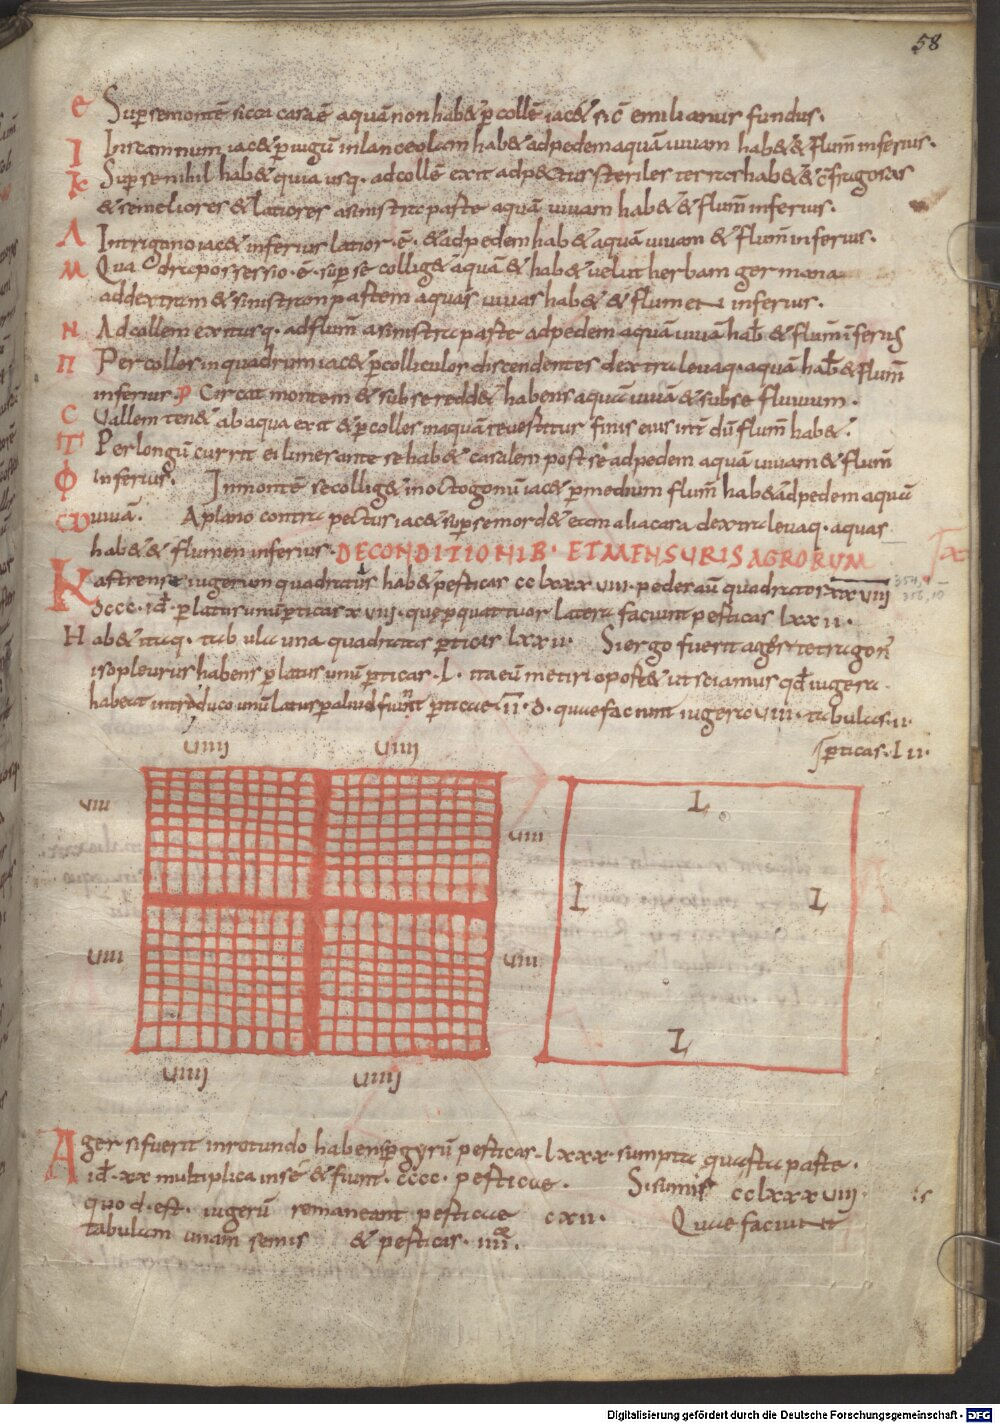 58
e Sup se montē sicca casa ē aquā non hab& p collē iac& sic̄ emilianus fundus.
I In scamnum iac& p iugū in lanceolam hab& ad pedem aquā uiuam hab& & flum̄ inferius.
K Sup se nihil hab& quia usq. ad collē exit ad pectus steriles terras hab& & c̄fragosas
& se meliores & latiores a sinistra parte aquā uiuam hab& & flum̄ inferius.
Λ In trigono iac& inferius latior. ē. & ad pedem hab& aquā uiuam & flum̄ inferius.
M Qua possessio. ē. sup se collig& aquā & hab& uelut herbam germana
ad dextram & sinistram partem aquas uiuas hab& & flumen inferius.
N Ad collem exit usq. ad flum̄ a sinistra parte ad pedem aquā uiuā hab& & flum̄ iferius
Π Per colles in quadrum iac& p colliculos discendentes dextra leuaq. aquā hab& & flum̄
inferius. P Circat montem & sub se redd& habens aquā uiuā & sub se fluuium.
C Uallem ten& ab aqua exit & p colles in aquā reuestitur finis eius int̄ dū flum̄ hab&.
T Per longū currit et limerante se hab& casalem post se ad pedem aquā uiuam & flum̄
Φ inferius. In montē se collig& in octogonū iac& p medium flum̄ hab& ad pedem aquā
ω uiuā. A plano contra pectus iac& sup se mord& cum alia casa dextra leuaq. aquas
hab& & flumen inferius. DE CONDITIONIB. ET MENSURIS AGRORUM
Kastrense iugerum quadratus hab& pesticas cclxxxuiii. pedes aū quadratos xxuiiii
dccc. id. p latus unū pticas xuiii. quę p quattuor latera faciunt pesticas lxxii.
Hab& itaq. tabula una quadratas pticas lxxii. Si ergo fuerit ager tetragon̄
isopleurus habens p latus unū pticas. L. ita eū metiri oport& ut sciamus qd̄ iugera
habeat intro duco unū latus p aliud fiunt pticae īī. d. quae faciunt iugera uiii. tabulas. ii.
pticas. L ii.
uiiii uiiii
uiii uiiii L
L L
uiiii uiiii
L
uiiii uiiii
Ager si fuerit in rotundo habens p gyrū pesticas. lxxx. sumpta quarta parte.
id. xx multiplica in se & fiunt. cccc. pesticae. Si sumis cclxxxuiii. is
quod. est. iugerū remaneant pesticae cxii. Quae faciunt
tabulam unam semis & pesticas. iiii.
Digitalisierung gefördert durch die Deutsche Forschungsgemeinschaft - DFG